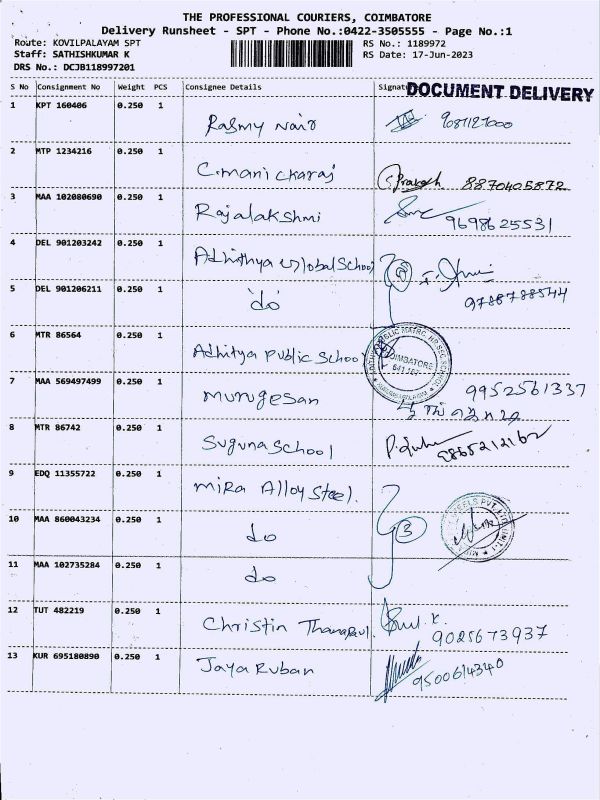 THE PROFESSIONAL COURIERS, COIMBATORE
Delivery Runsheet - SPT - Phone No.:0422-3505555 - Page No.:1
Route: KOVILPALAYAM SPT
Staff: SATHISHKUMAR K
DRS No.: DCJB118997201
RS No.: 1189972
RS Date: 17-Jun-2023
S No Consignment No Weight PCS Consignee Details Signat
DOCUMENT DELIVERY
1 KPT 160406 0.250 1 Rasmy Nair
2 MTP 1234216 0.250 1 C.manickaraj Prakash 8870405872
3 MAA 102080690 0.250 1 Rajalakshmi 9698625531
4 DEL 901203242 0.250 1 Adhithya Global School
5 DEL 901206211 0.250 1 do 9788788544
6 MTR 86564 0.250 1 Adhitya Public School
PUBLIC MATRC. HR. SEC. SCHOOL
COIMBATORE
641 107
7 MAA 569497499 0.250 1 murugesan 9952561337
8 MTR 86742 0.250 1 Suguna School
9 EDQ 11355722 0.250 1 Mira Alloy Steel.
10 MAA 860043234 0.250 1 do 3
STEELS PVT. LTD. UNIT-I
11 MAA 102735284 0.250 1 do
12 TUT 482219 0.250 1 Christin Thanapaul. 9025673937
13 KUR 695180890 0.250 1 Jaya Ruban 9500614340